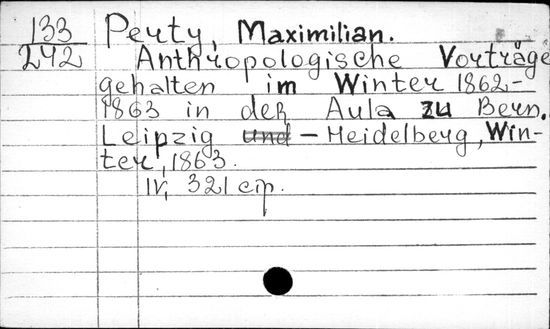 133 Perty, Maximilian.
242 Anthropologische Vorträge
gehalten im Winter 1862-
1863 in der Aula zu Bern.
Leipzig – Heidelberg, Win-
ter, 1863.
IV, 321 стр.